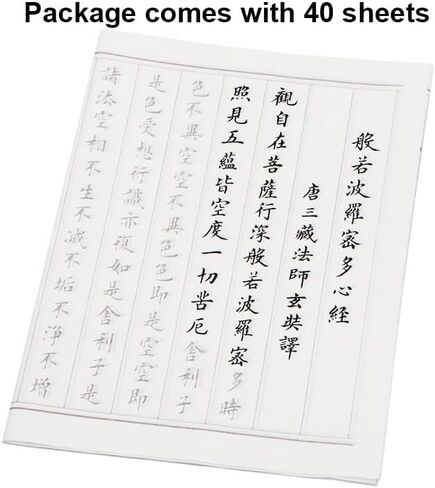 Package comes with 40 sheets
般若波羅密多心經
唐三藏法師玄奘譯
觀自在菩薩行深般若波羅密多時
照見五蘊皆空度一切苦厄舍利子
色不異空空不異色色即是空空即
是色受想行識亦復如是舍利子是
諸法空相不生不滅不垢不淨不增